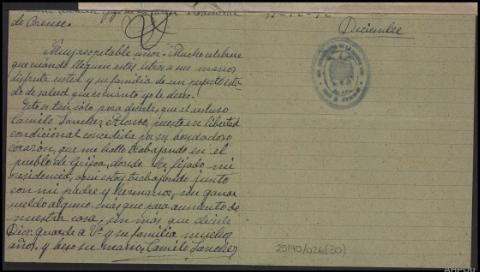 de Orense.
Diciembre
Muy respetable señor: Mucho celebraré
que cuando lleguen estas letras a sus manos
disfrute usted y su familia de un perfecto esta-
do de salud que es cuanto yo le deseo.
Esta es tan sólo para decirle, que el recluso
Camilo Sanchez puesto en libertad
condicional concedida por su bondadoso
corazón, que me hallo trabajando en el
pueblo de donde he fijado mi
residencia, aqui estoy trabajando junto
con mi padre y hermanos, sin ganar
sueldo alguno más que para aumento de
nuestra casa, sin más que decirle
Dios guarde a Vd y su familia muchos
años, y beso su mano, Camilo Sanchez
25140/026(30)